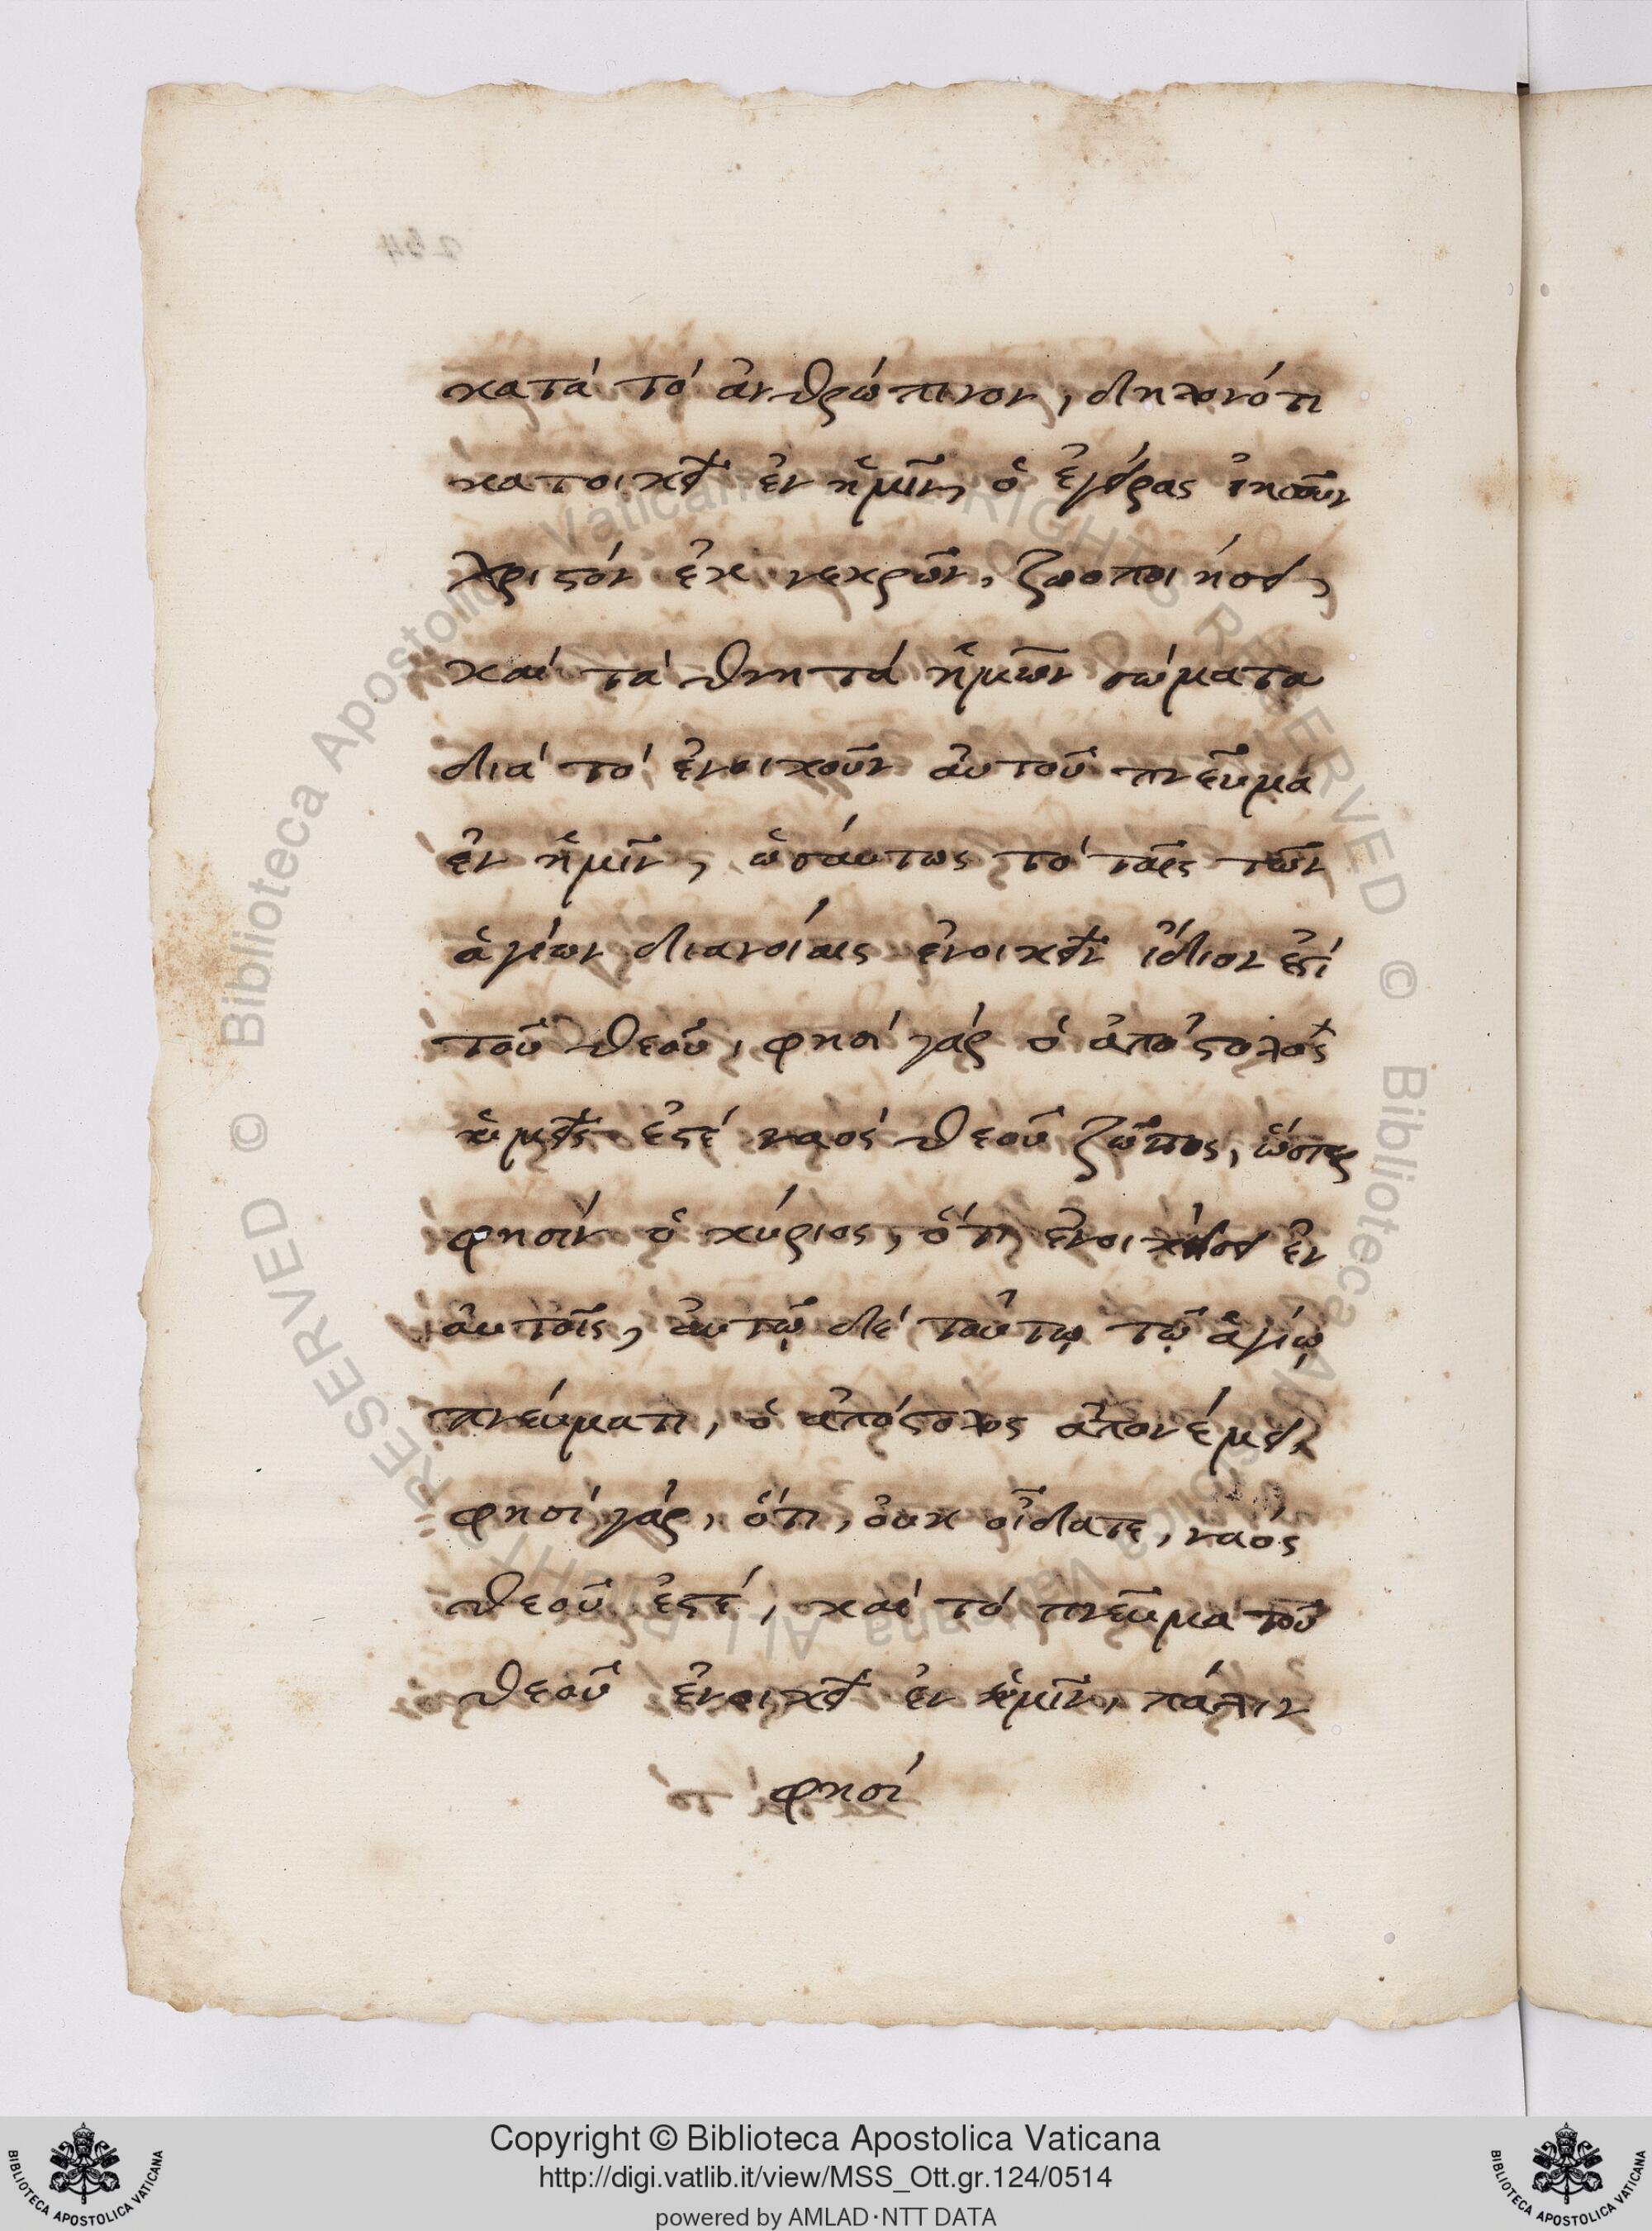 κατά τό ἀνθρώπινον, δηλονότι
κατοικεῖ ἐν ἡμῖν, ὁ ἐγείρας ἰησοῦν
χριστόν ἐκ νεκρῶν, ζωοποιήσει,
καί τά θνητά ἡμῶν σώματα
διά τό ἐνοικοῦν αὐτοῦ πνεῦμα
ἐν ἡμῖν, ὡσάυτως τό ταῖς τῶν
ἁγίων διανοίαις ἐνοικεῖν ἴδιον ἐστί
τοῦ θεοῦ, φησί γάρ ὁ ἀπόστολος
ὑμεῖς ἐστέ ναός θεοῦ ζῶντος, ὥσπερ
φησίν ὁ κύριος, ὅτι ἐνοικήσει ἐν
ἀυτοῖς, ἀυτῷ δέ τοῦτῳ τῷ ἁγίῳ
πνεύματι, ὁ ἀπόστολος ἀπονέμει,
φησί γάρ, ὅτι, ὀυκ οἶδατε, ναός
θεοῦ ἐστέ, καί τό πνεῦμα τοῦ
θεοῦ ἐνοικεῖ ἐν ὑμῖν, πάλιν
φησί
Copyright © Biblioteca Apostolica Vaticana
http://digi.vatlib.it/view/MSS_Ott.gr.124/0514
powered by AMLAD·NTT DATA
BIBLIOTECA APOSTOLICA VATICANA
BIBLIOTECA APOSTOLICA VATICANA